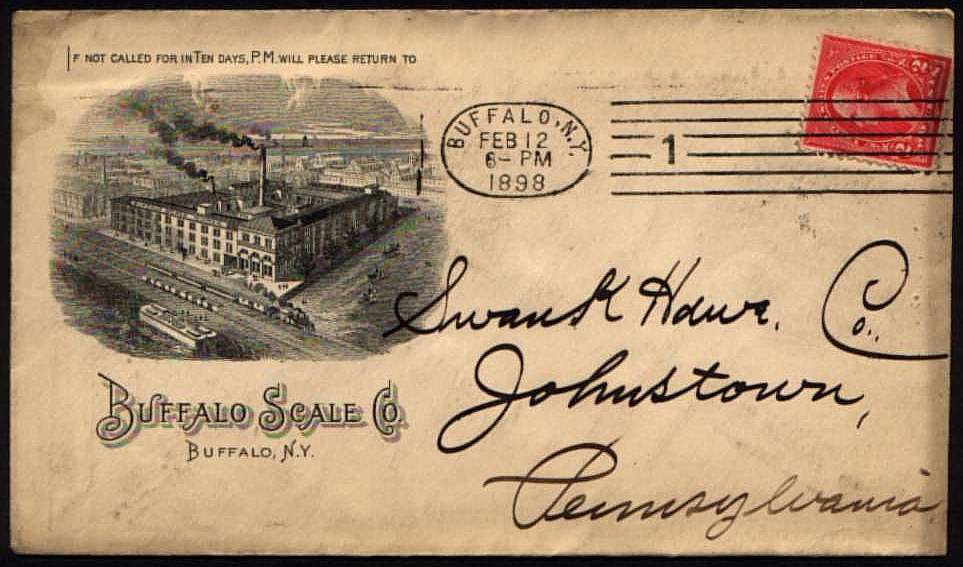 IF NOT CALLED FOR IN TEN DAYS, P.M. WILL PLEASE RETURN TO
BUFFALO, N.Y.
FEB 12
6- PM
1898
1
BUFFALO SCALE CO.
BUFFALO, N.Y.
Swank Hdwe. Co.,
Johnstown,
Pennsylvania